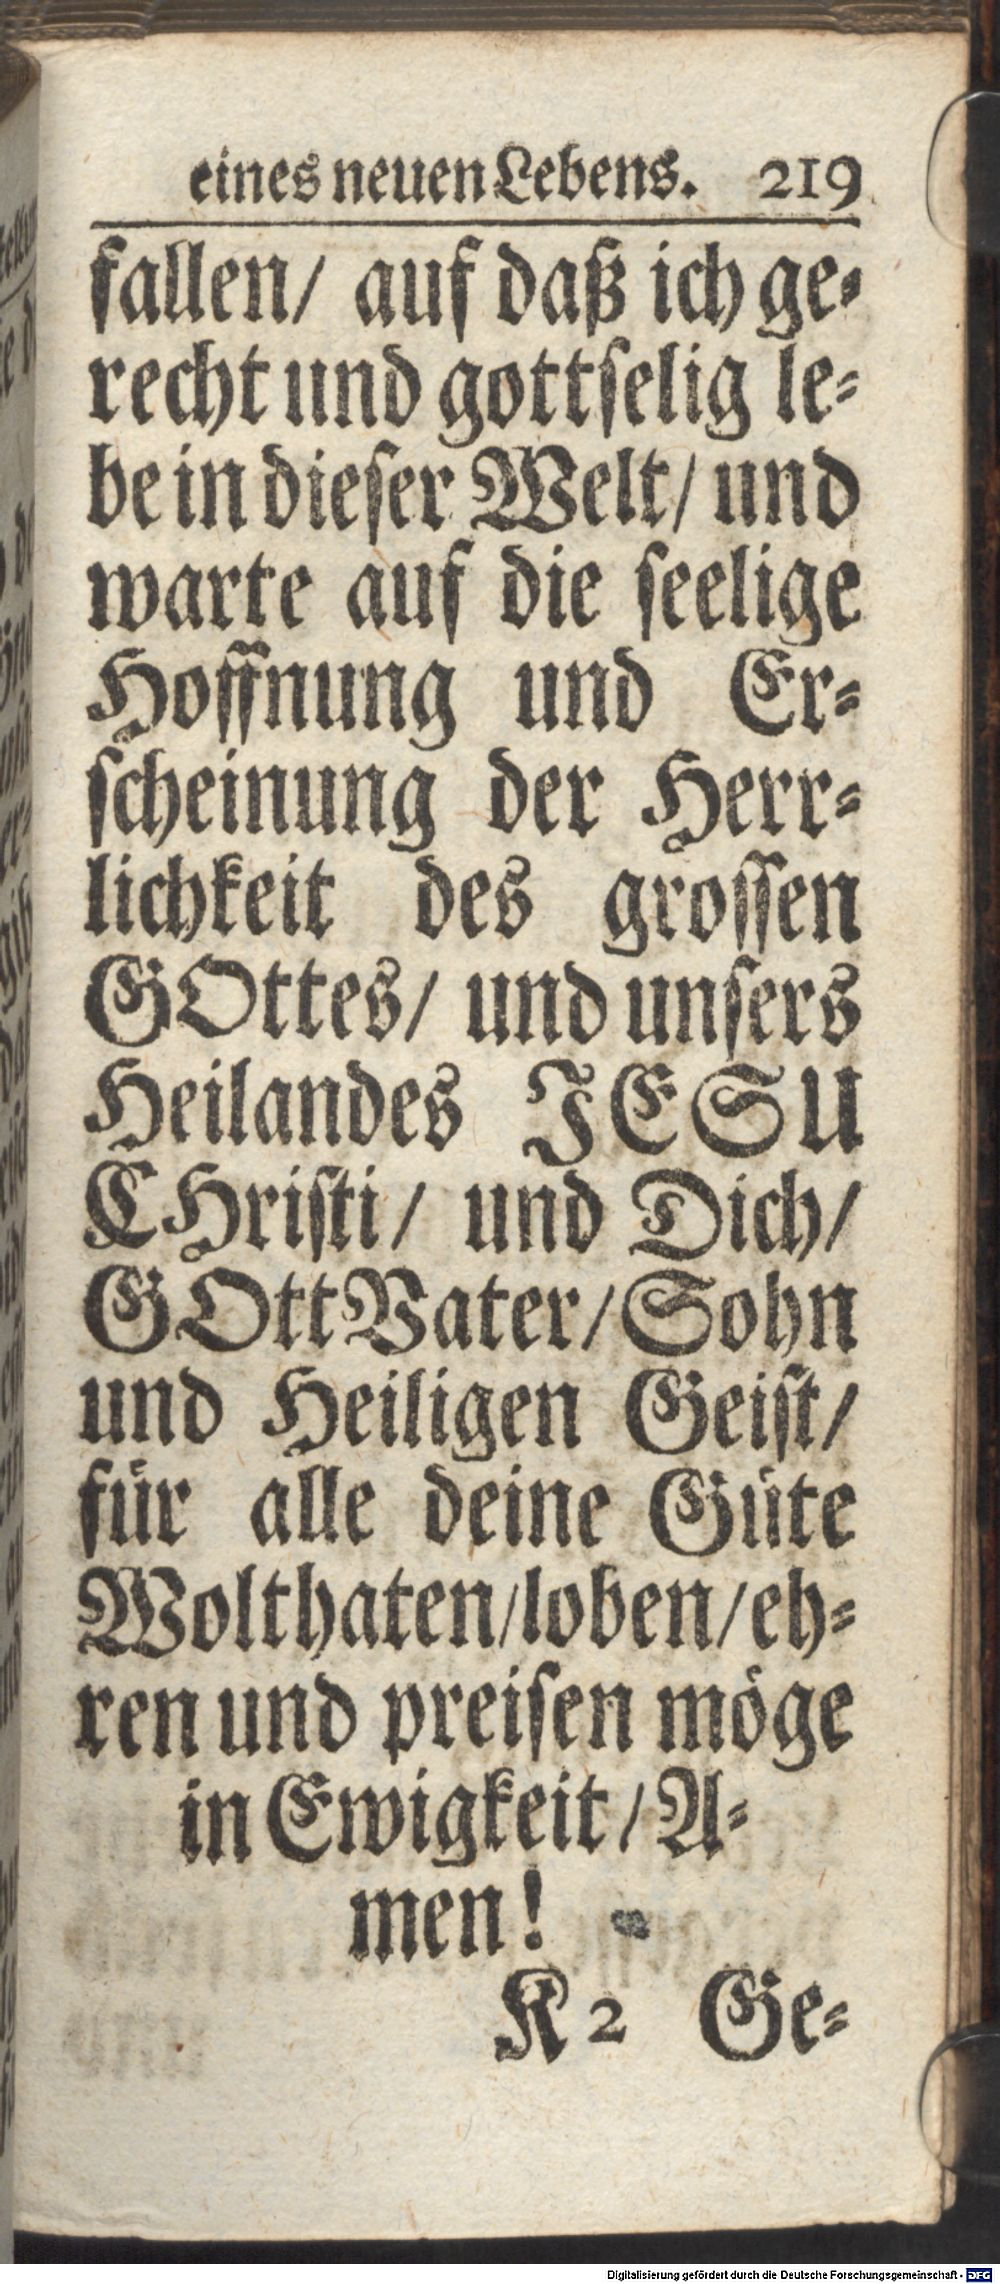 eines neuen Lebens. 219
fallen/ auf daß ich ge-
recht und gottselig le-
be in dieser Welt/ und
warte auf die seelige
Hoffnung und Er-
scheinung der Herr-
lichkeit des grossen
GOttes/ und unsers
Heilandes JESU
CHristi/ und Dich/
GOtt Vater/ Sohn
und Heiligen Geist/
für alle deine Güte
Wolthaten/ loben/ eh-
ren und preisen möge
in Ewigkeit/ A-
men!
K 2 Ge-
Digitalisierung gefördert durch die Deutsche Forschungsgemeinschaft - DFG